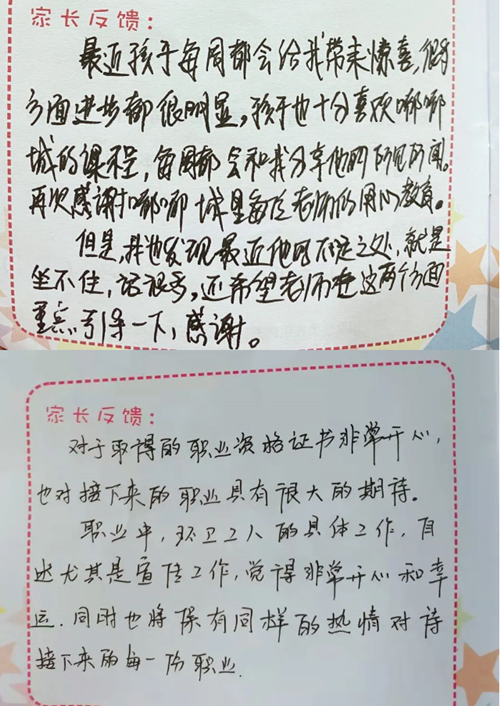 家长反馈：
最近孩子每周都会给我带来惊喜，很多
方面进步都很明显，孩子也十分喜欢嘟嘟
城的课程，每周都会和我分享他的所见所闻。
再次感谢嘟嘟城里每位老师的用心教育。
但是，我也发现最近他的不足之处，就是
坐不住，话很多，还希望老师在这两个方面
重点引导一下，感谢。
家长反馈：
对于取得的职业资格证书非常开心，
也对接下来的职业具有很大的期待。
职业中，环卫工人的具体工作，自
述尤其是宣传工作，觉得非常开心和幸
运．同时也将保有同样的热情对待
接下来的每一份职业．